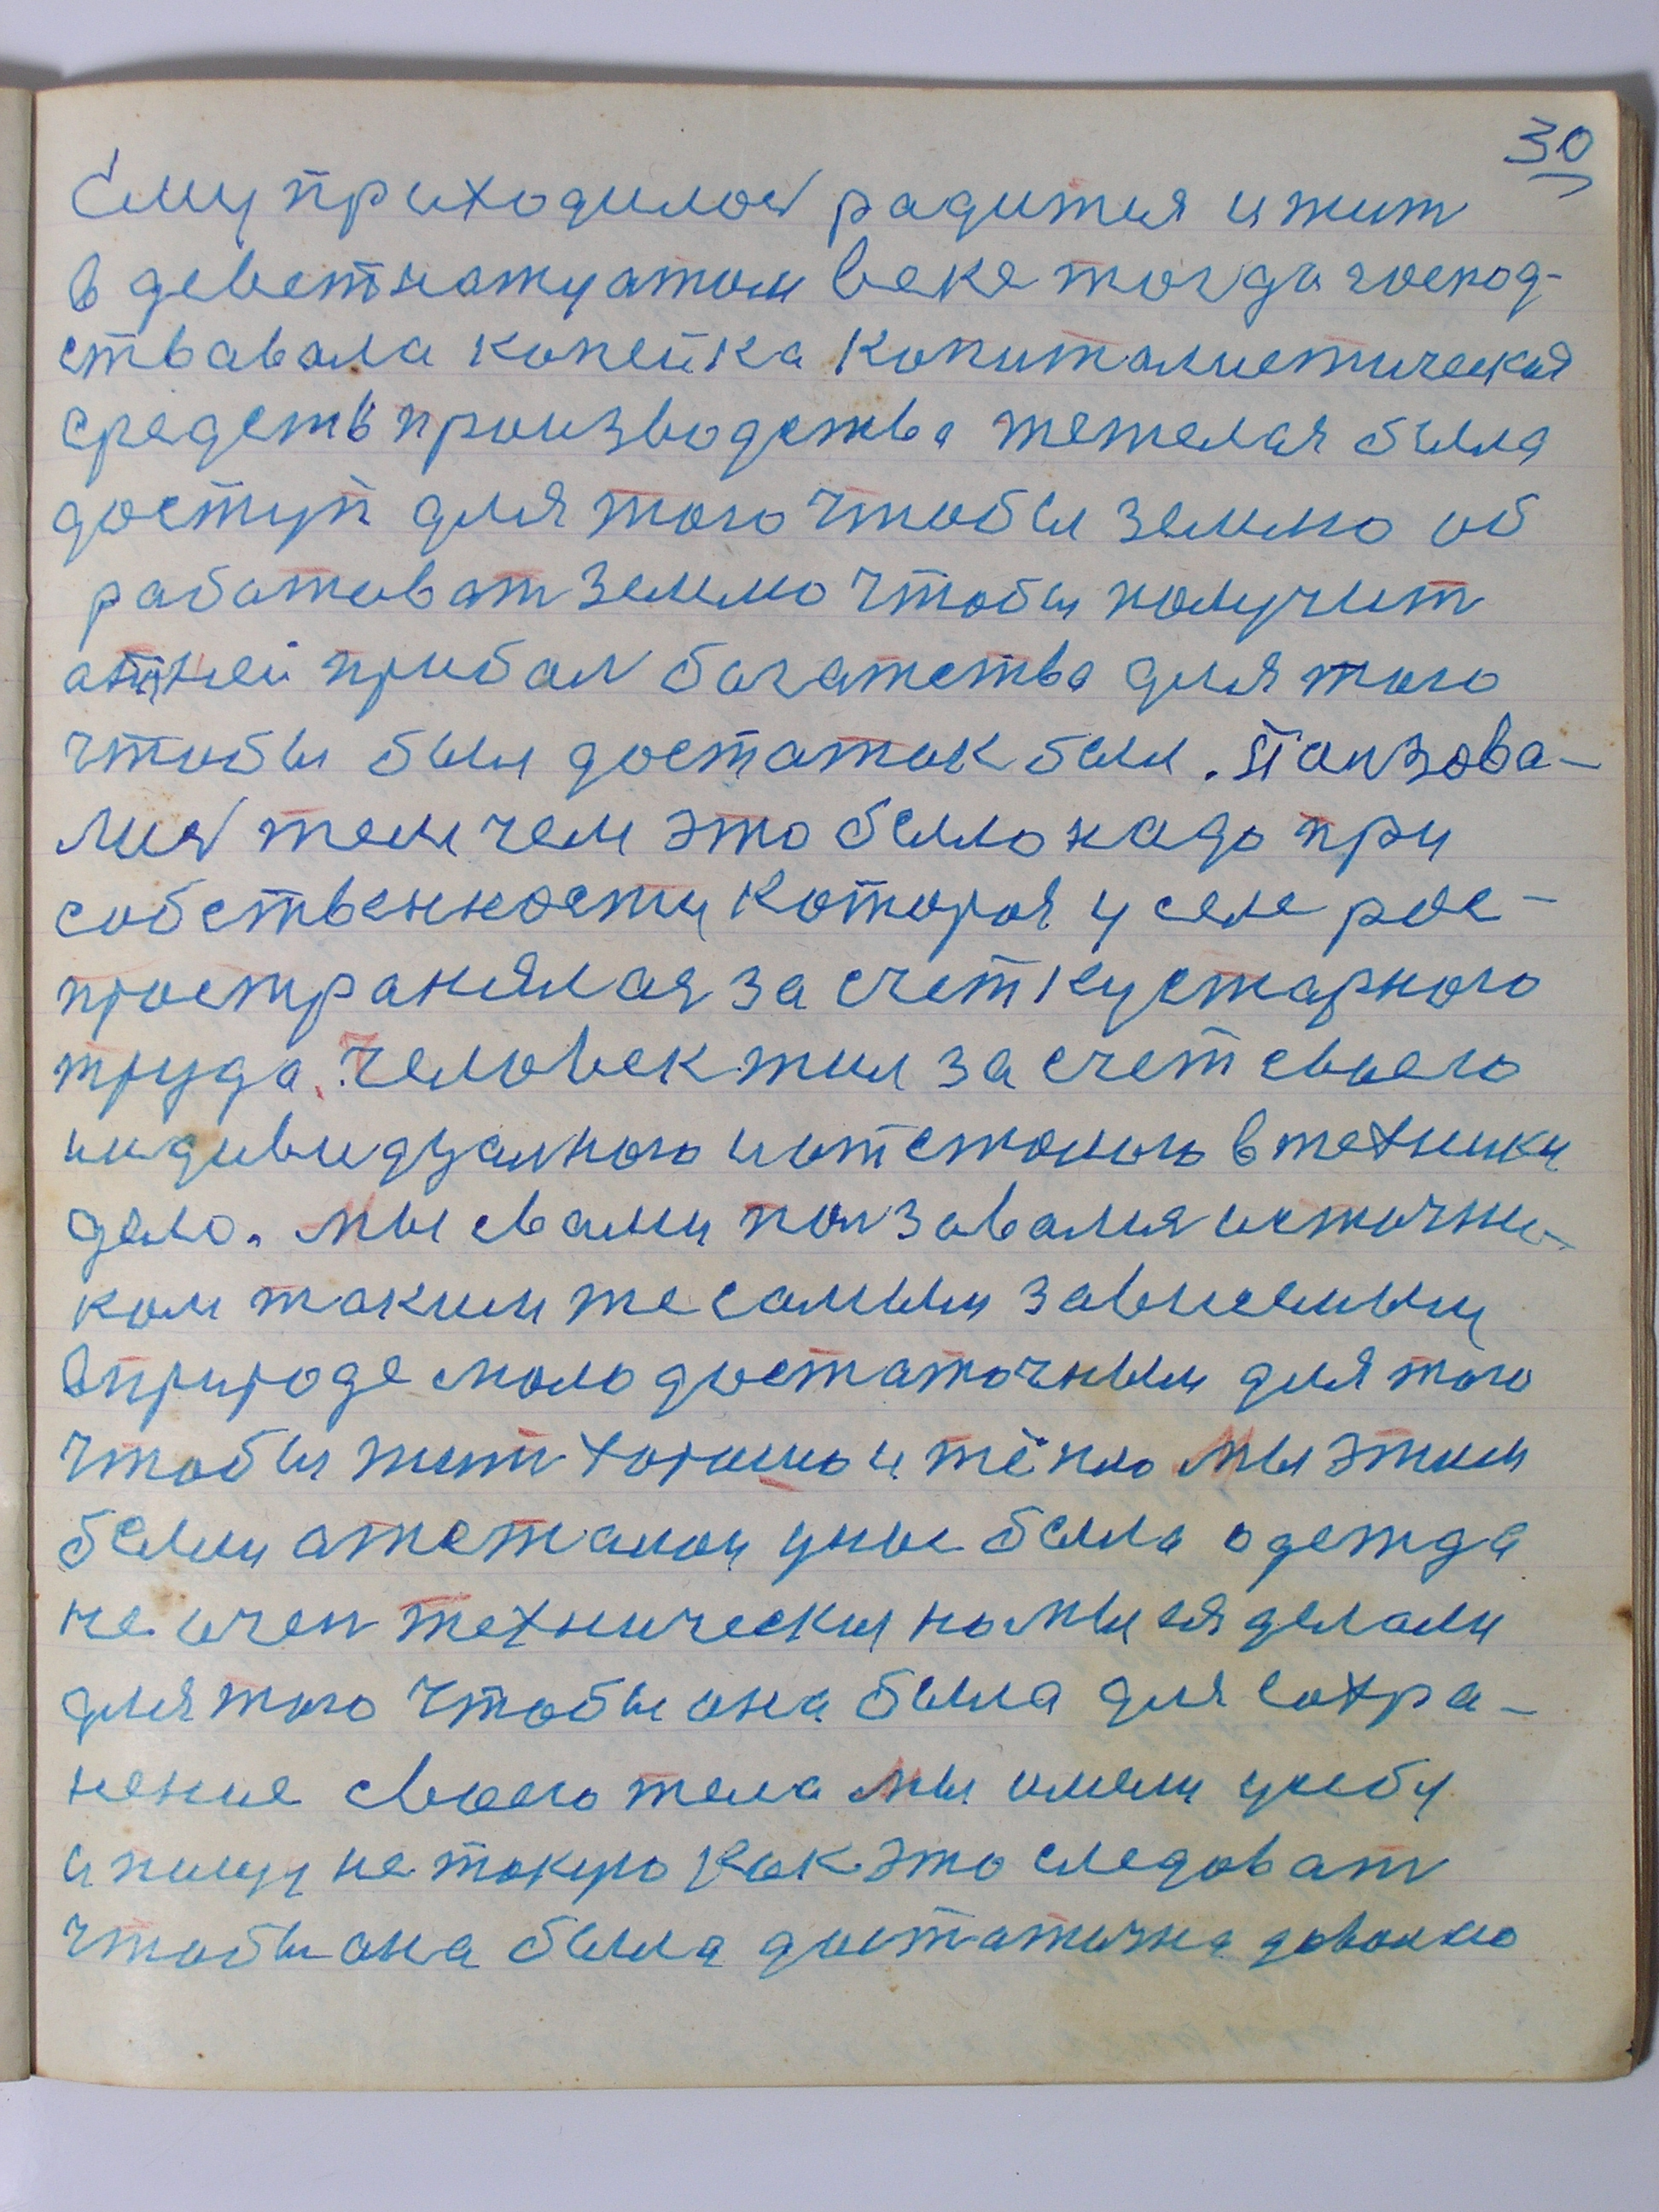 30
Ему приходилось радится и жит
в деветнатцатом веке тогда господ-
ствавала копейка копиталистическая
средств производства тежелая была
доступ для того чтобы землю об
работоват землю чтобы получит
атней прибал багатства для того
чтобы был достаток был. Ползова-
лись тем чем это было надо при
собственности которая у селе рос-
пространялася за счет кустарного
труда. Человек жил за счет своего
индивидуалного и отсталого в техники
дело. Мы свами ползавалися источни-
ком таким же самым зависемым
в природе мало достаточным для того
чтобы жит хорошо и тёпло мы этим
были атсталои у нас была одежда
не очен технически но мы ея делали
для того чтобы она была для сохра-
нение своего тела мы имели учебу
и пищу не такую как это следоват
чтобы она была достаточна доволно